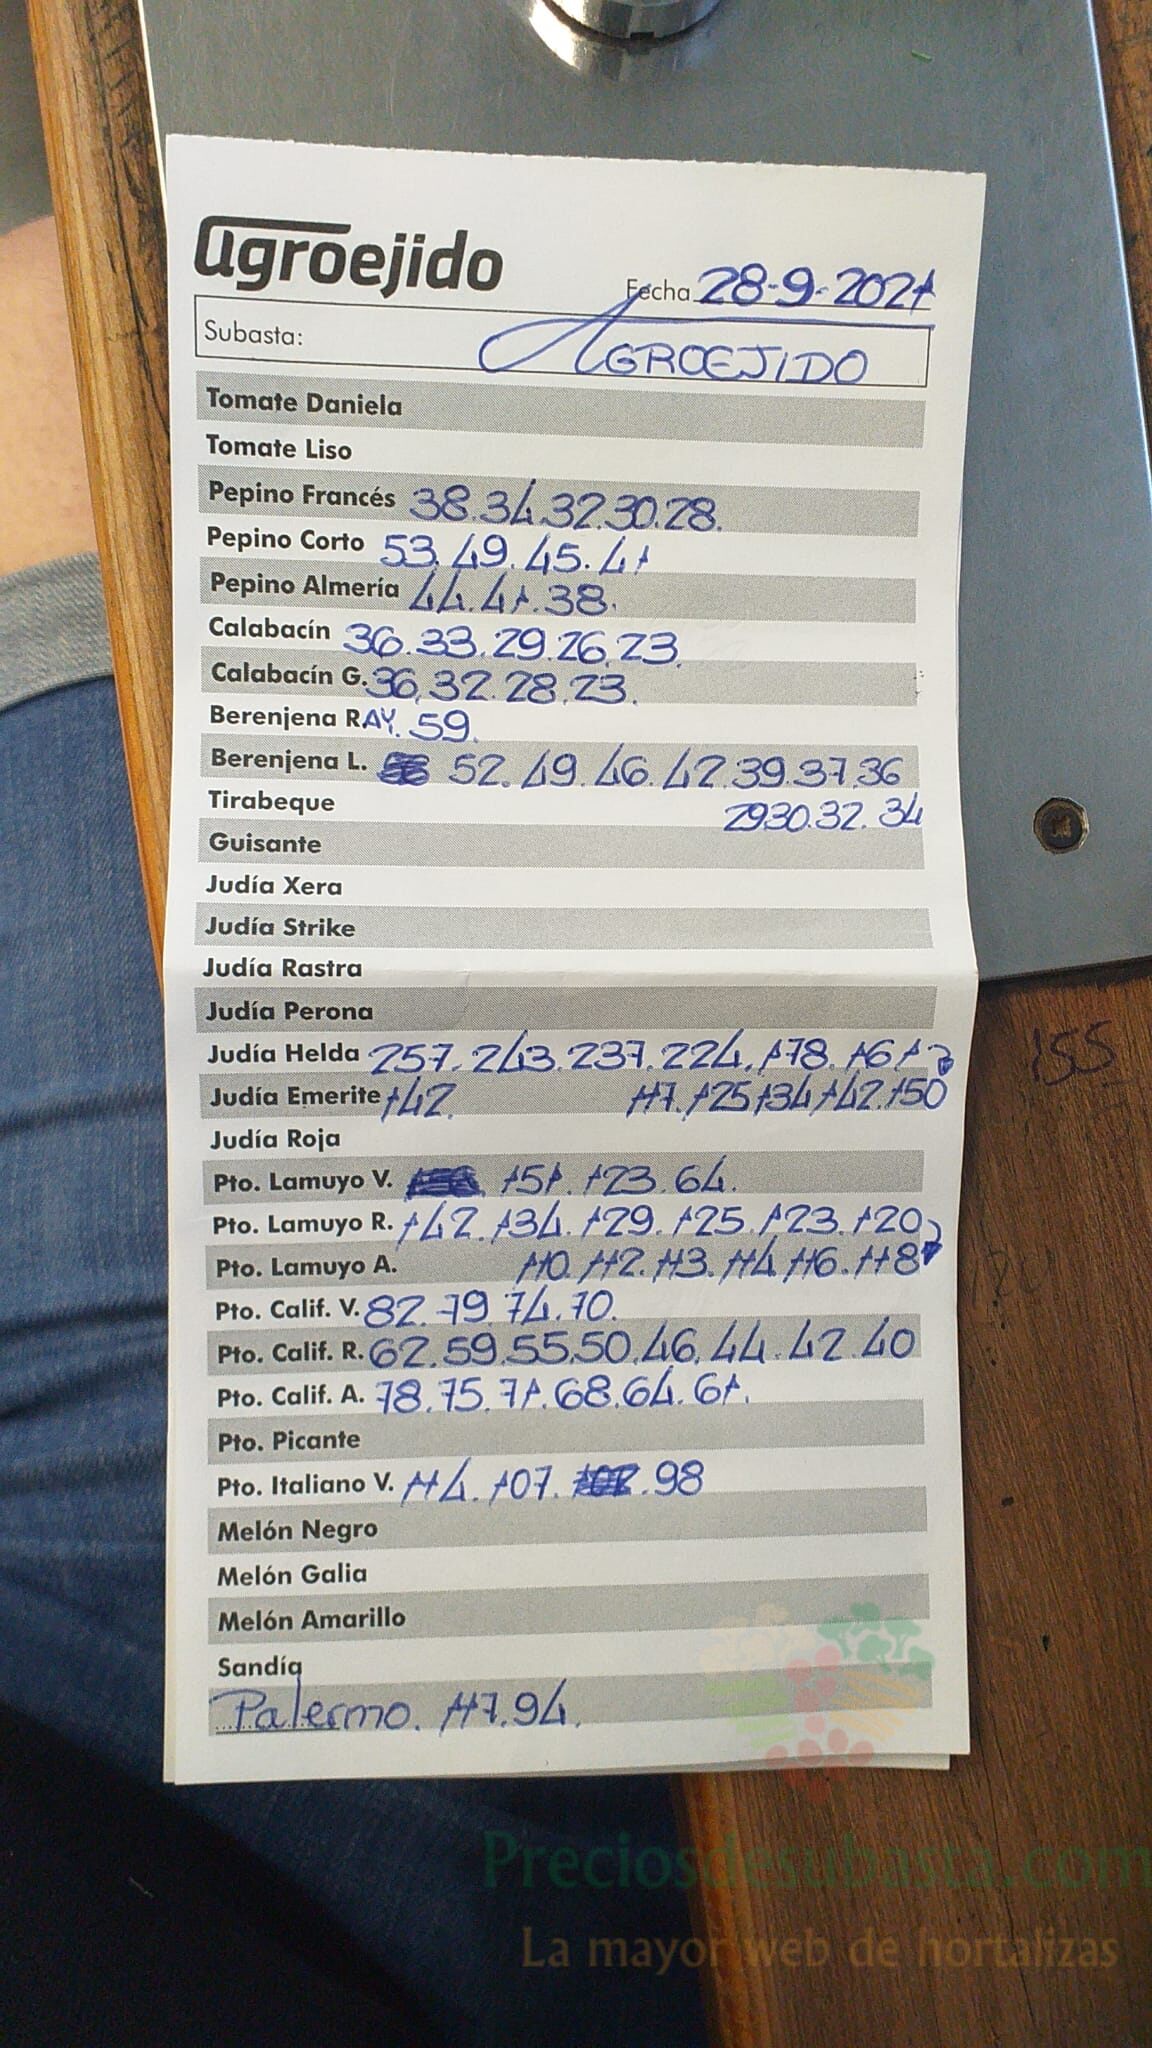 agroejido
Fecha 28-9-2021
Subasta: AGROEJIDO
Tomate Daniela
Tomate Liso
Pepino Francés 38.34.32.30.28.
Pepino Corto 53.49.45.41
Pepino Almería 44.41.38.
Calabacín 36.33.29.26.23.
Calabacín G. 36.32.28.23.
Berenjena RAY. 59.
Berenjena L. 52.49.46.42.39.37.36
Tirabeque 29 30.32.34
Guisante
Judía Xera
Judía Strike
Judía Rastra
Judía Perona
Judía Helda 257.243.237.224.178.161
Judía Emerite 142. 117.125 134 142.150
Judía Roja
Pto. Lamuyo V. 151.123.64.
Pto. Lamuyo R. 142.134.129.125.123.120
Pto. Lamuyo A. 110.112.113.114.116.118
Pto. Calif. V. 82.79.74.70.
Pto. Calif. R. 62.59.55.50.46.44.42.40
Pto. Calif. A. 78.75.71.68.64.61.
Pto. Picante
Pto. Italiano V. 114.107. .98
Melón Negro
Melón Galia
Melón Amarillo
Sandía
Palermo. 117.94.
155
Preciosdesubasta.com
La mayor web de hortalizas